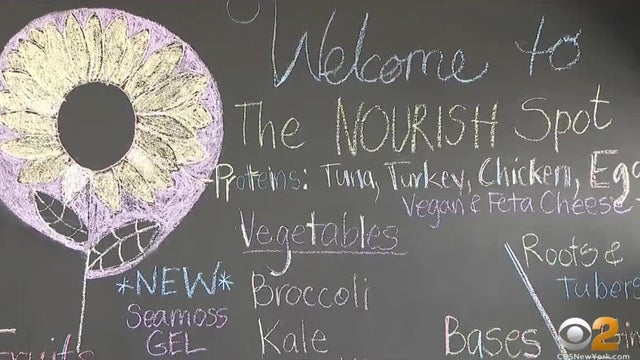 Welcome to
The NOURISH Spot
Proteins: Tuna, Turkey, Chicken, Egg
Vegan & Feta Cheese
Vegetables
Roots &
Tubers
*NEW*
Seamoss
GEL
Broccoli
Kale
Fruits
Bases
2
CBSNewYork.com